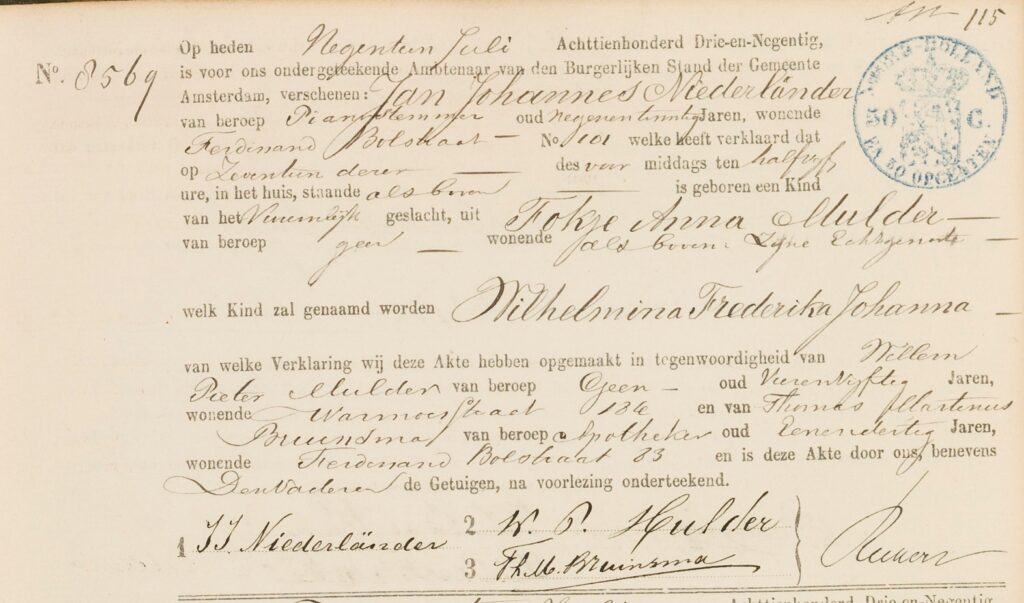 115
Op heden Negentien Juli Achttienhonderd Drie-en-Negentig,
No. 8569 is voor ons ondergeteekende Ambtenaar van den Burgerlijken Stand der Gemeente
Amsterdam, verschenen: Jan Johannes Niederländer
van beroep Pianostemmer oud Negenentwintig Jaren, wonende
Ferdinand Bolstraat No 101 welke heeft verklaard dat
op Zeventien dezer des voor middags ten half vijf
ure, in het huis, staande als boven is geboren een Kind
van het Vrouwelijk geslacht, uit Fokje Anna Mulder
van beroep geen wonende als boven Zijne Echtgenoote
welk Kind zal genaamd worden Wilhelmina Frederika Johanna
van welke Verklaring wij deze Akte hebben opgemaakt in tegenwoordigheid van Willem
Pieter Mulder van beroep Geen oud Vierenvijftig Jaren,
wonende Warmoesstraat en van Thomas Martinus
Bruinsma van beroep Apotheker oud Eenendertig Jaren,
wonende Ferdinand Bolstraat 83 en is deze Akte door ons, benevens
Den Vader en de Getuigen, na voorlezing onderteekend.
1 JJ Niederländer 2 W. P. Mulder
3 Th. M. Bruinsma
NOORD-HOLLAND
50 C.
EN 50 OPCENTEN
Achttienhonderd Drie-en-Negentig